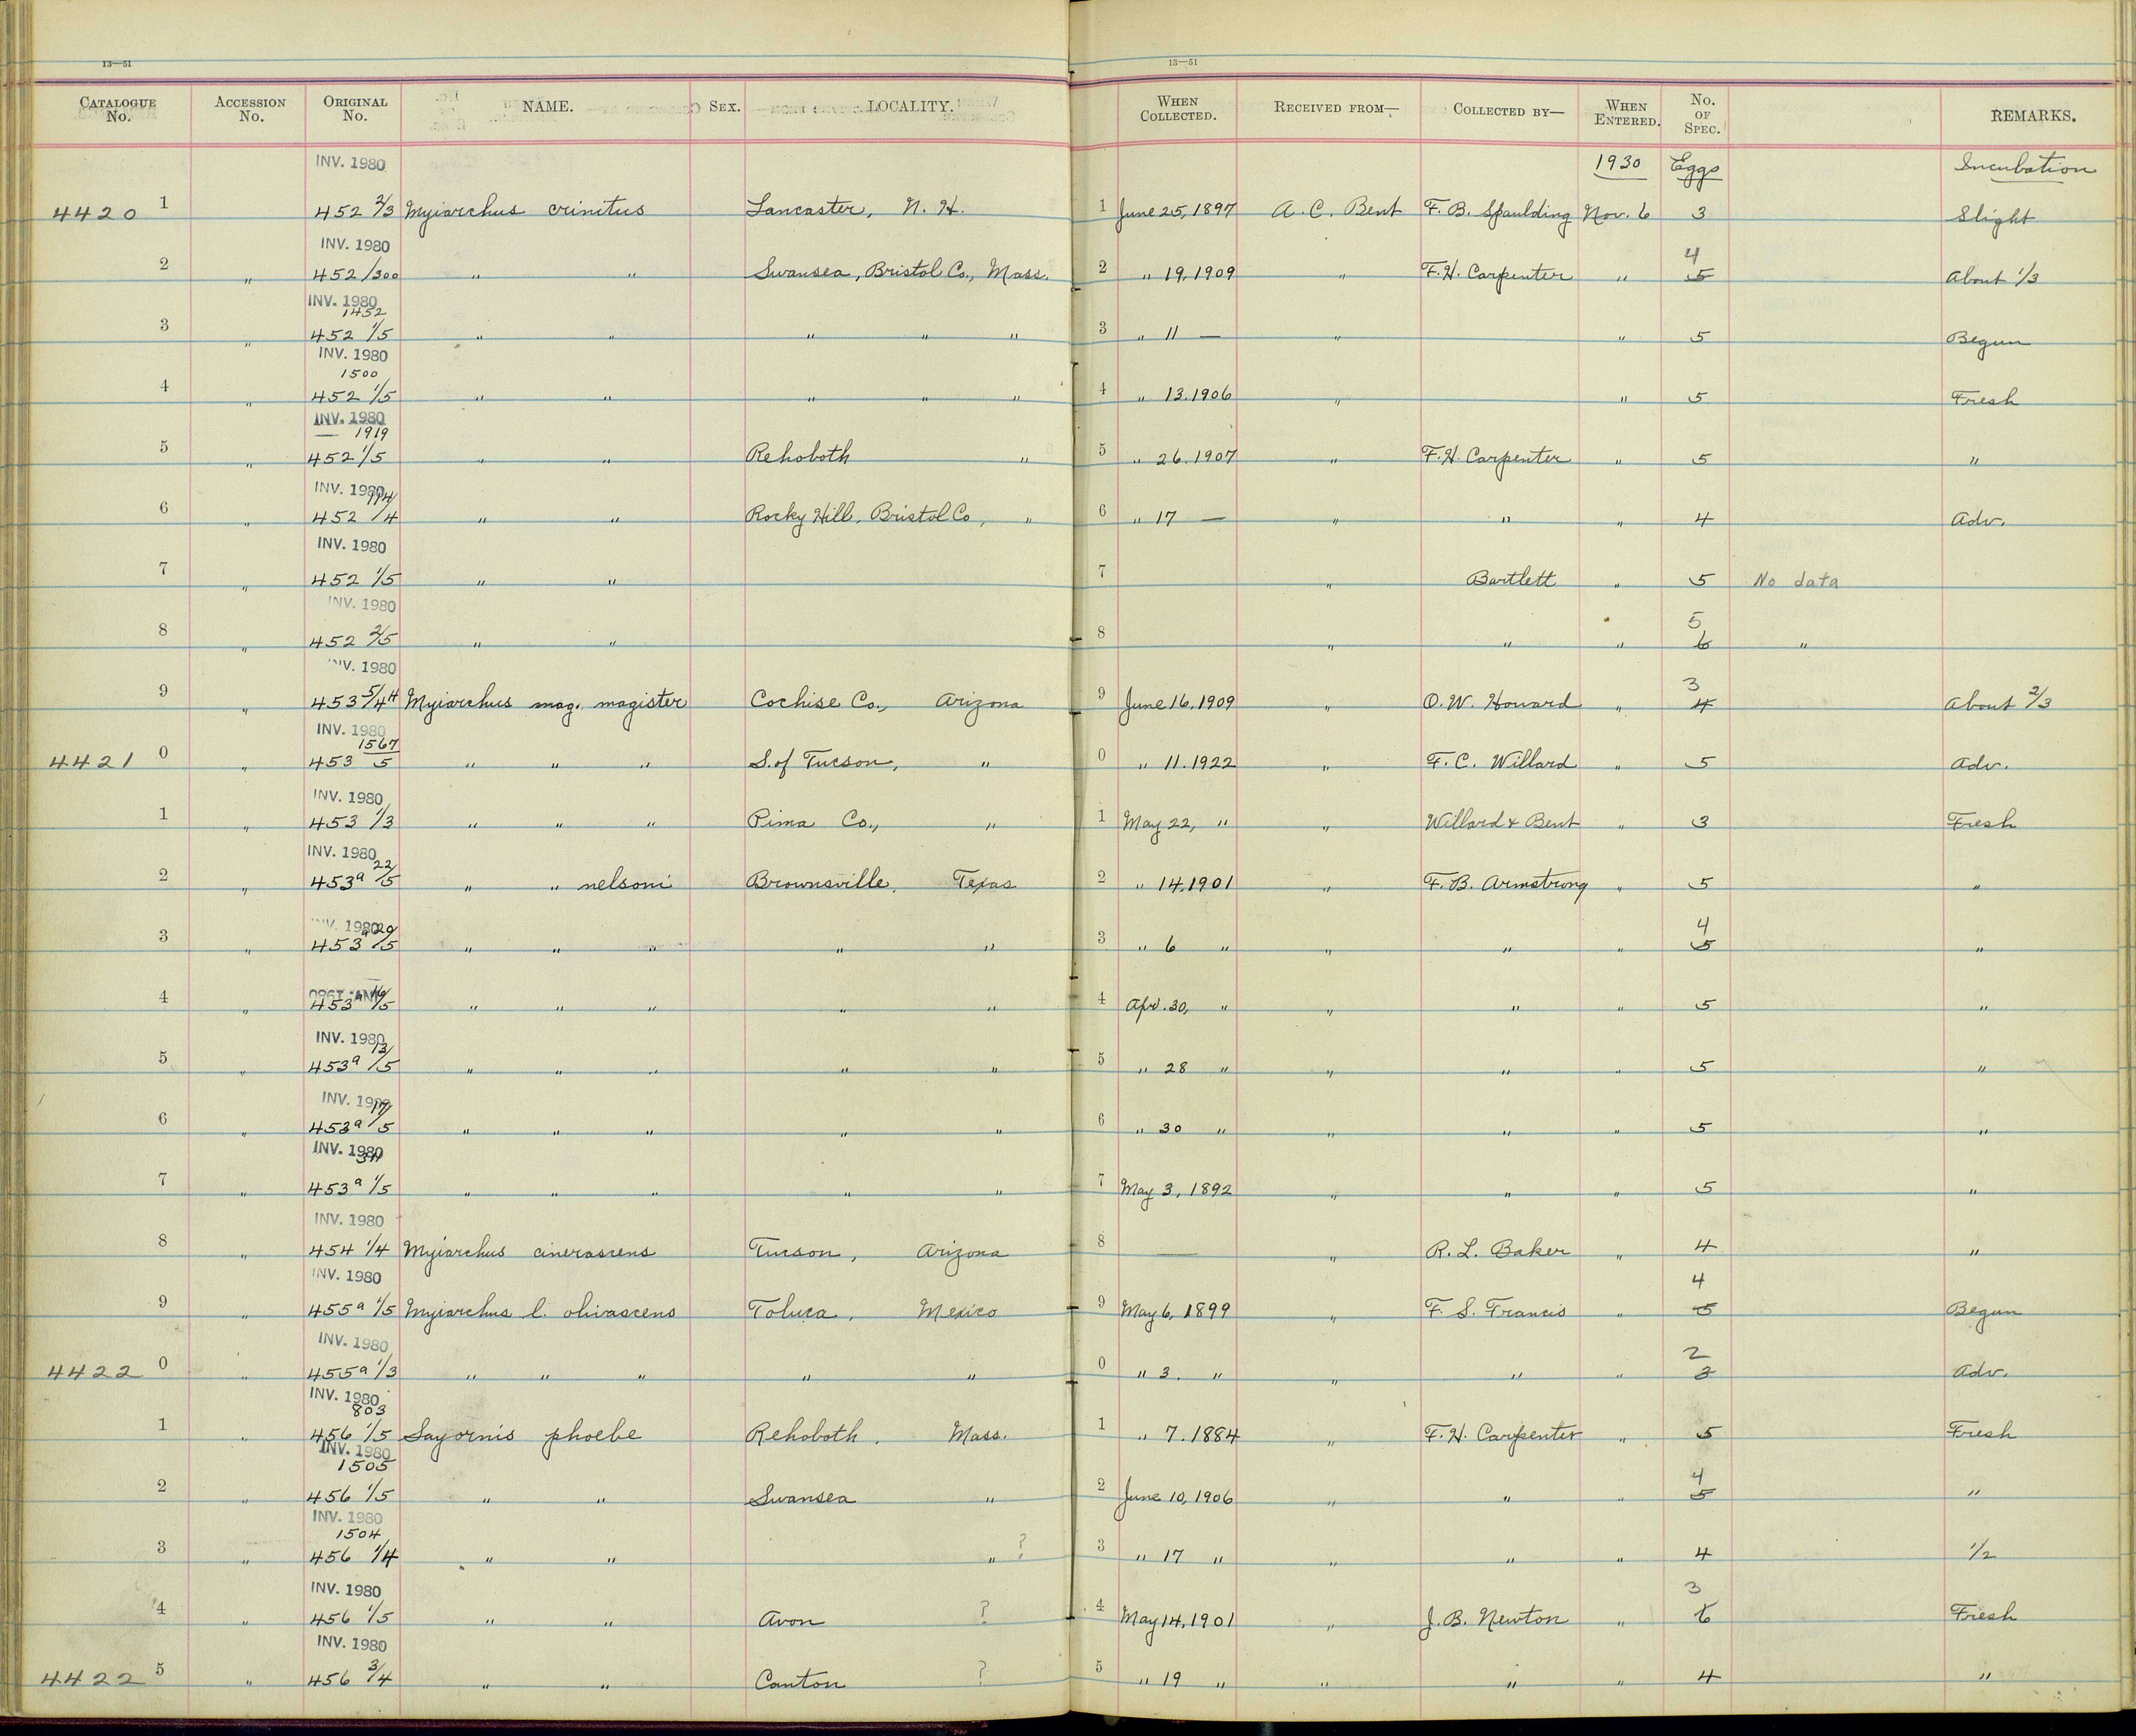 13—51 13—51
Catalogue No. Accession No. Original No. NAME. Sex. LOCALITY. When Collected. Received from— Collected by— When Entered. No. of Spec. REMARKS.
INV. 1980 1930 Eggs Incubation
4420 1 452 2/3 Myiarchus crinitus Lancaster, N. H. 1 June 25, 1897 A. C. Bent F. B. Spaulding Nov. 6 3 Slight
INV. 1980 4
2 " 452/300 " " Swansea, Bristol Co., Mass. 2 " 19, 1909 " F. H. Carpenter " 5 About 1/3
INV. 1980
1452
3 " 452 1/5 " " " " " 3 " 11 — " " 5 Begun
INV. 1980
1500
4 " 452 1/5 " " " " " 4 " 13. 1906 " " 5 Fresh
INV. 1980
— 1919
5 " 452 1/5 " " Rehoboth " 5 " 26. 1907 " F. H. Carpenter " 5 "
INV. 1980
6 " 452 /4 " " Rocky Hill, Bristol Co, " 6 " 17 — " " " 4 Adv.
INV. 1980
7 " 452 1/5 " " 7 " Bartlett " 5 No data
INV. 1980 5
8 " 452 2/5 " " 8 " " " 6 "
INV. 1980 3
9 " 453 5/4 4 Myiarchus mag. magister Cochise Co., Arizona 9 June 16, 1909 " O. W. Howard " 4 About 2/3
INV. 1980
1567
4421 0 " 453 5 " " " S. of Tucson, " 0 " 11. 1922 " F. C. Willard " 5 Adv.
INV. 1980
1 " 453 1/3 " " " Pima Co., " 1 May 22, " " Willard & Bent " 3 Fresh
INV. 1980
2 " 453a 22/5 " " nelsoni Brownsville, Texas 2 " 14, 1901 " F. B. Armstrong " 5 "
INV. 1980 4
3 " 453a 20/5 " " " " " 3 " 6 " " " " 5 "
INV. 1980
4 " 453a 16/5 " " " " " 4 Apr. 30, " " " " 5 "
INV. 1980
5 " 453a 13/5 " " " " " 5 " 28 " " " " 5 "
INV. 1980
6 " 453a 17/5 " " " " " 6 " 30 " " " " 5 "
INV. 1980
7 " 453a 1/5 " " " " " 7 May 3, 1892 " " " 5 "
INV. 1980
8 " 454 1/4 Myiarchus cinerascens Tucson, Arizona 8 — " R. L. Baker " 4 "
INV. 1980 4
9 " 455a 1/5 Myiarchus l. olivascens Toluca, Mexico 9 May 6, 1899 " F. S. Francis " 5 Begun
INV. 1980 2
4422 0 " 455a 1/3 " " " " " 0 " 3. " " " " 3 Adv.
INV. 1980
803
1 " 456 1/5 Sayornis phoebe Rehoboth, Mass. 1 " 7. 1884 " F. H. Carpenter " 5 Fresh
INV. 1980
1505 4
2 " 456 1/5 " " Swansea " 2 June 10, 1906 " " " 5 "
INV. 1980
1504
3 " 456 1/4 " " " ? 3 " 17 " " " " 4 1/2
INV. 1980 3
4 " 456 1/5 " " Avon ? 4 May 14, 1901 " J. B. Newton " 6 Fresh
INV. 1980
4422 5 " 456 3/4 " " Canton ? 5 " 19 " " " " 4 "